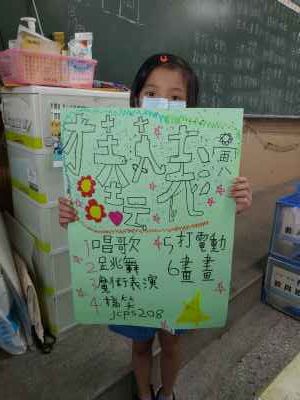 才藝
1唱歌
2跳舞
3魔術表演
4搞笑
5打電動
6畫畫
jcps208